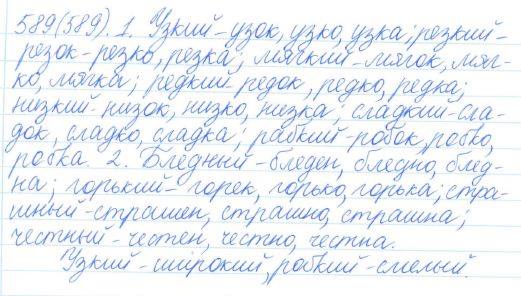 589(589). 1. Узкий-узок, узко, узка; резкий-
резок-резко, резка; мягкий-мягок, мяг-
ко, мягка; редкий-редок, редко, редка;
низкий-низок, низко, низка; сладкий-сла-
док, сладко, сладка; робкий-робок, робко,
робка. 2. Бледный-бледен, бледно, блед-
на; горький-горек, горько, горька; стра-
шный-страшен, страшно, страшна;
честный-честен, честно, честна.
Узкий-широкий, робкий-смелый.